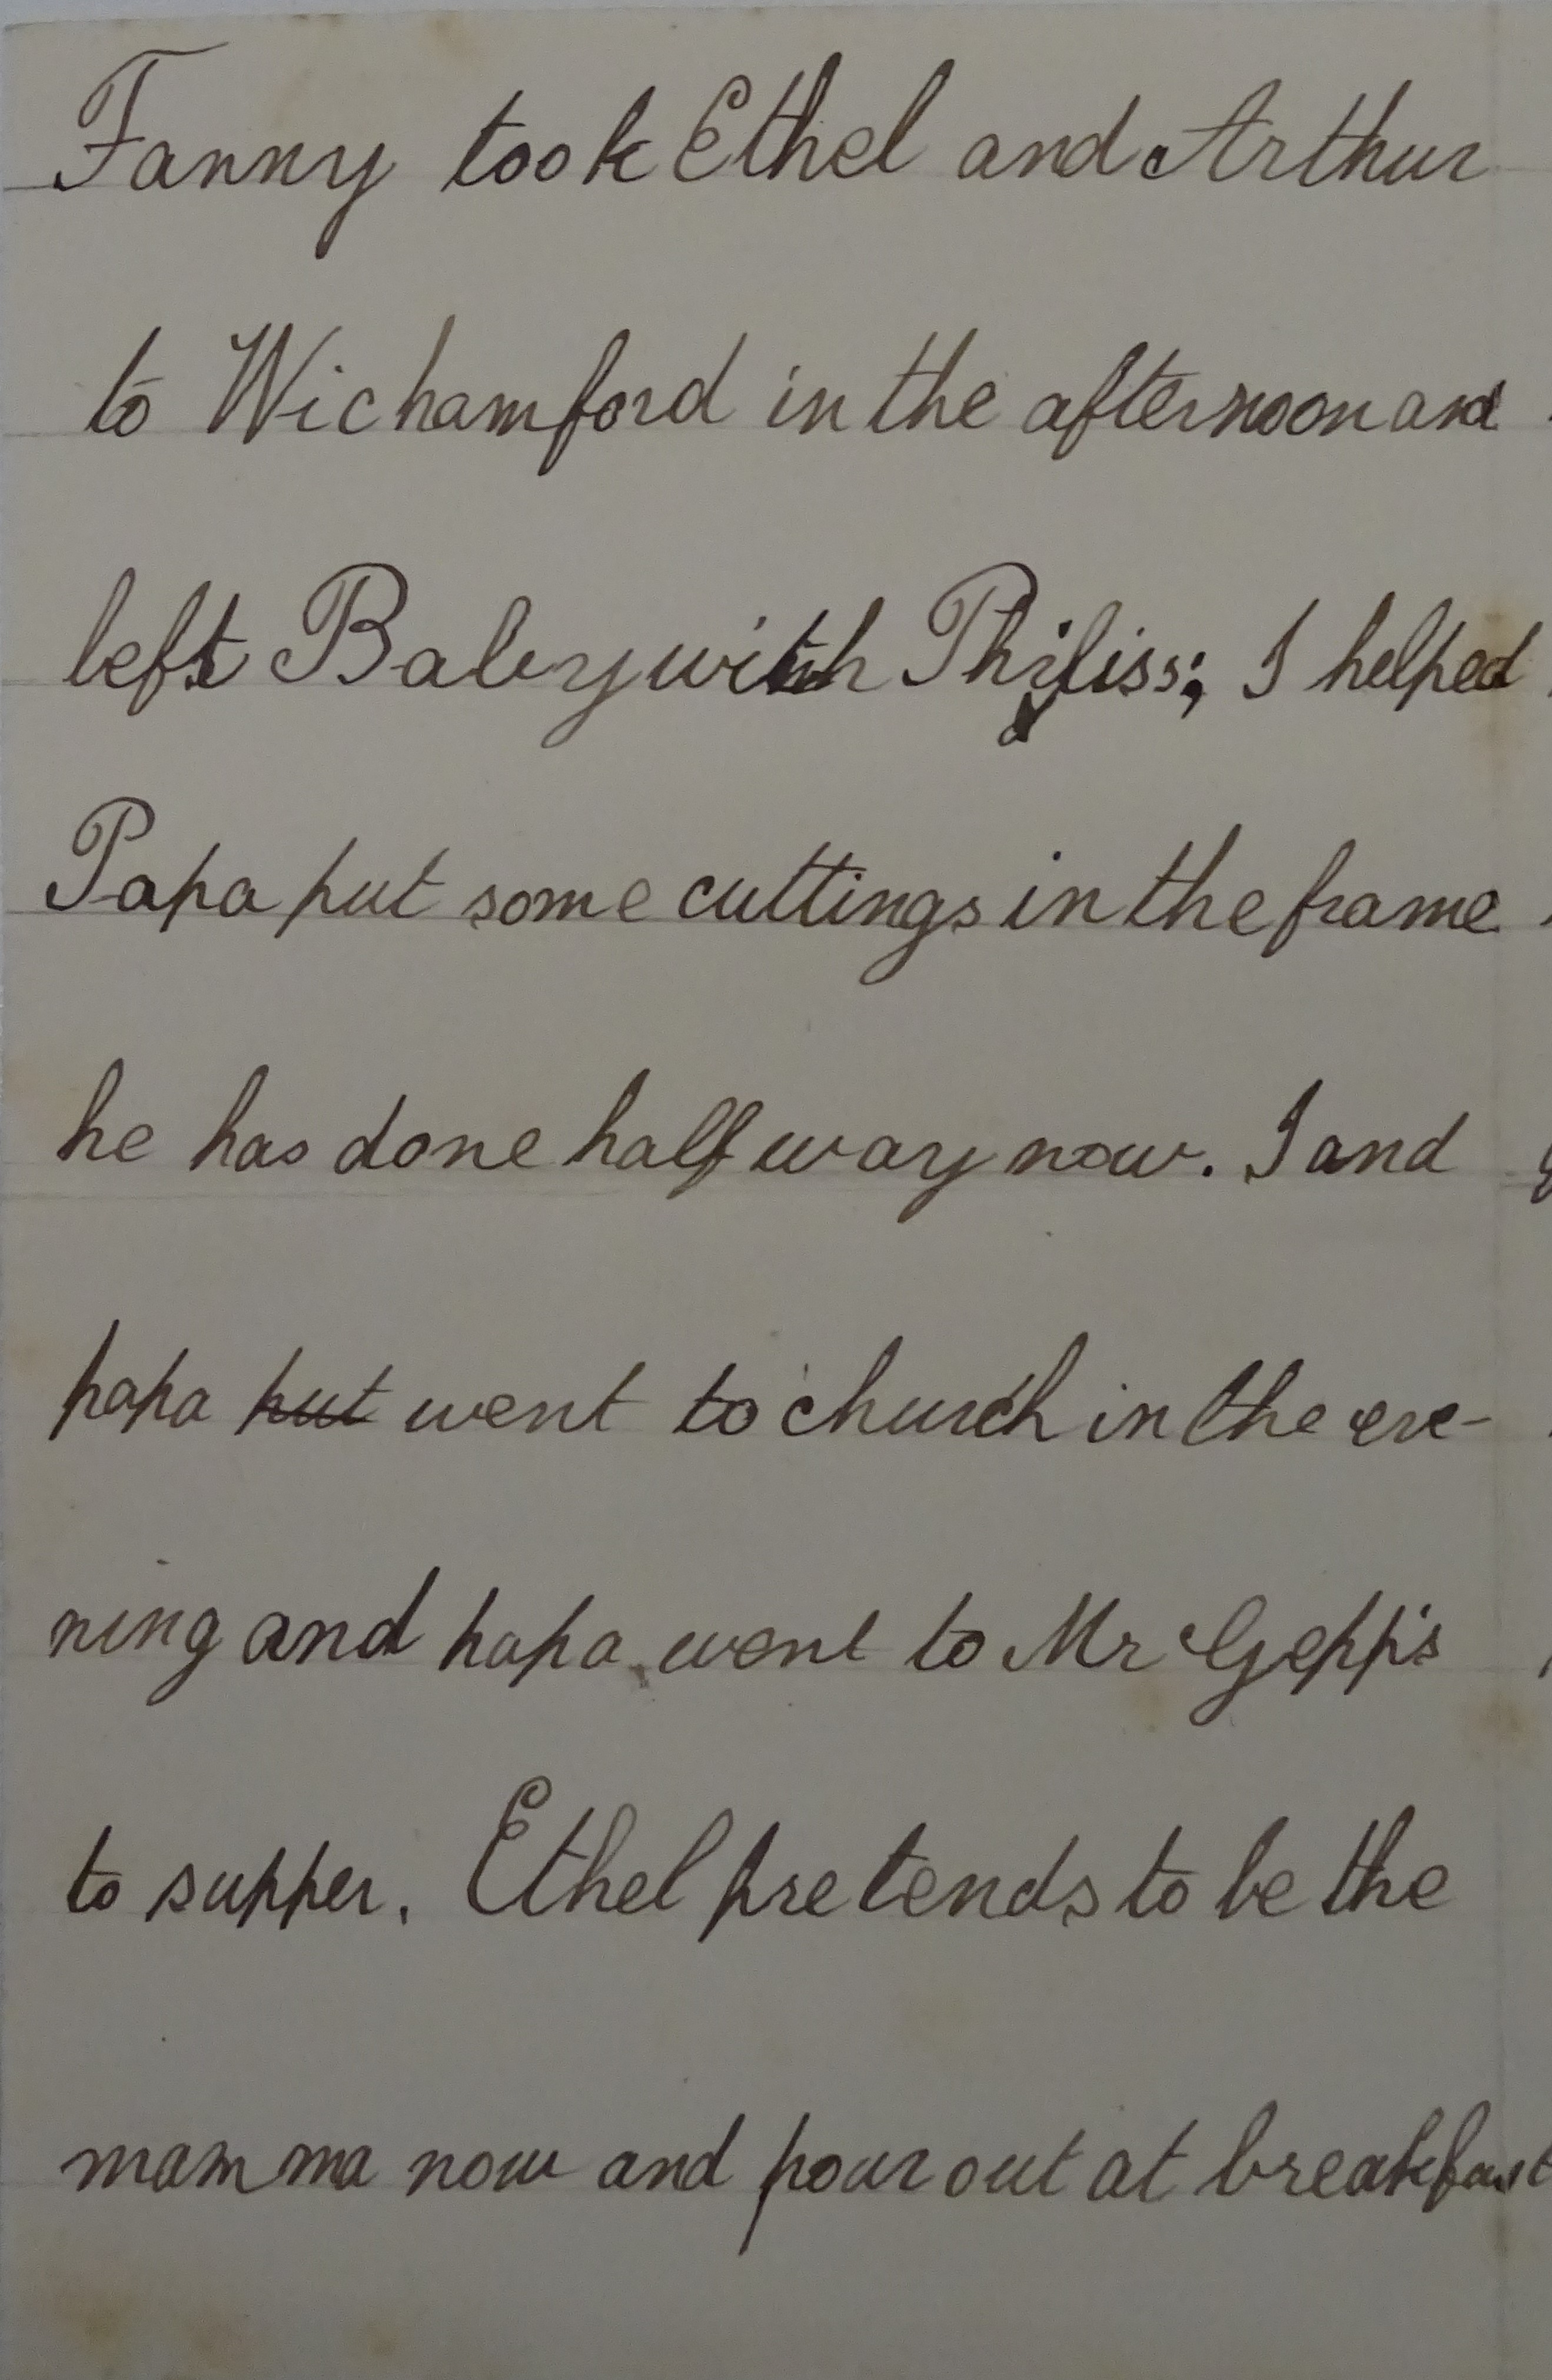 Fanny took Ethel and Arthur
to Wichamford in the afternoon and
left Baby with Phyliss; I helped
Papa put some cuttings in the frame
he has done half way now. I and
papa put went to church in the eve-
ning and papa went to Mr Gepp's
to supper. Ethel pretends to be the
mamma now and pour out at breakfast